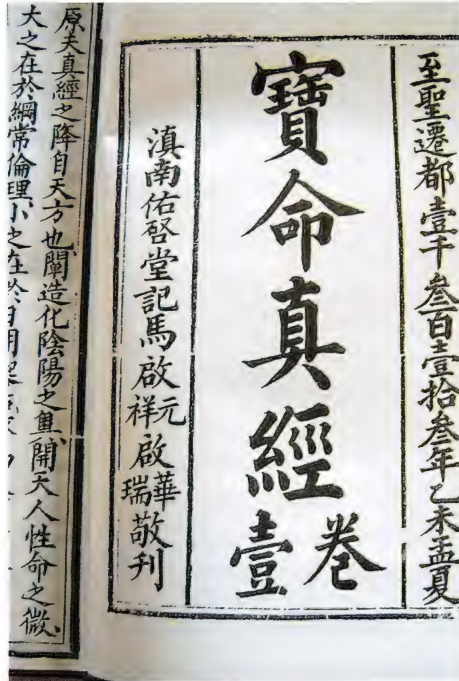 至聖遷都壹千叁百壹拾叁年乙未孟夏
寶命真經
卷壹
滇南佑啓堂記馬啟元祥啟華瑞敬刊
原夫真經之降自天方也闡造化陰陽之奧開天人性命之微
大之在於綱常倫理小之在於日用